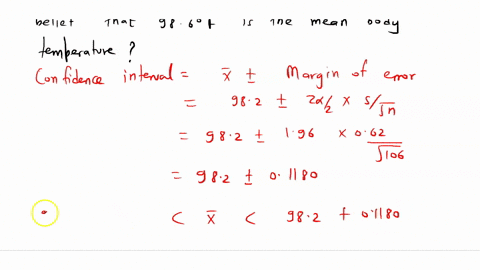 belief that 98.6°F is the mean body
temperature?
Confidence interval = x̄ ± Margin of error
= 98.2 ± Zα/2 × s/√n
= 98.2 ± 1.96 × 0.62/√106
= 98.2 ± 0.1180
< x̄ < 98.2 + 0.1180